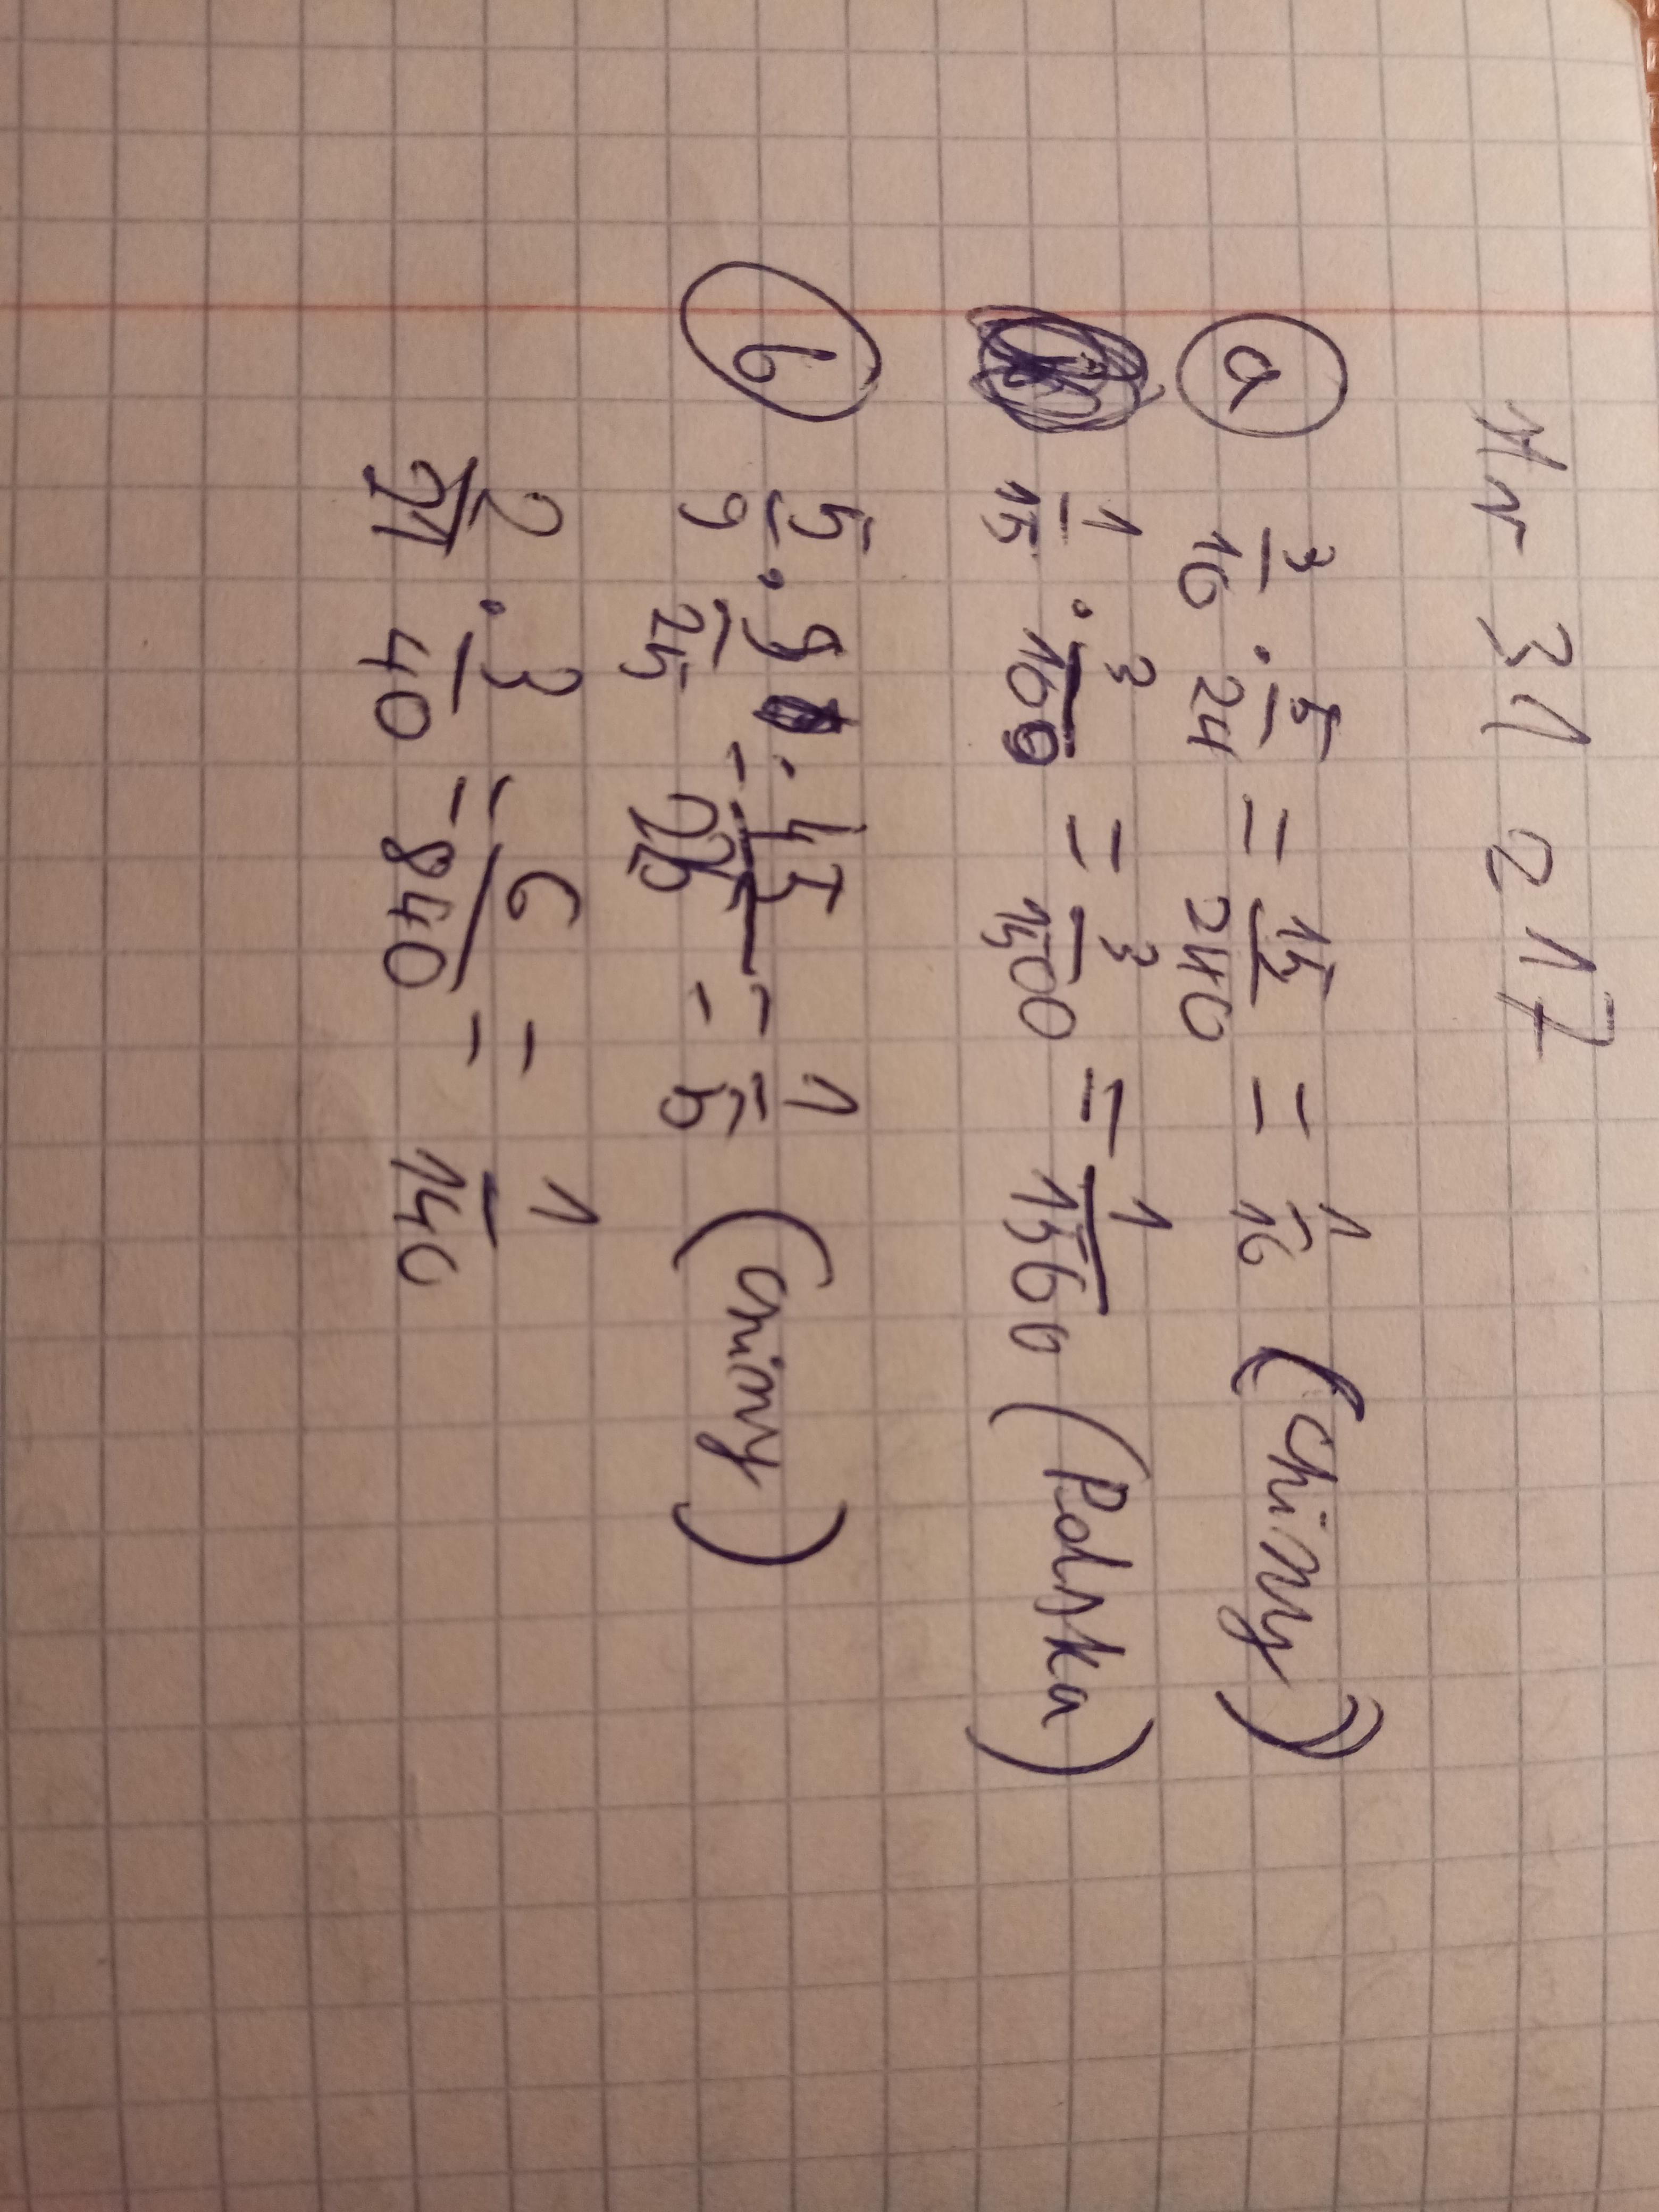 Nr 31 a 17
a 3/16 · 5/24 = 15/240 = 1/16 (Chiny)
1/15 · 3/100 = 3/1500 = 1/1500 (Polska)
b 5/9 · 9/25 = 45/225 = 1/5 (Chiny)
2/21 · 3/40 = 6/840 = 1/140